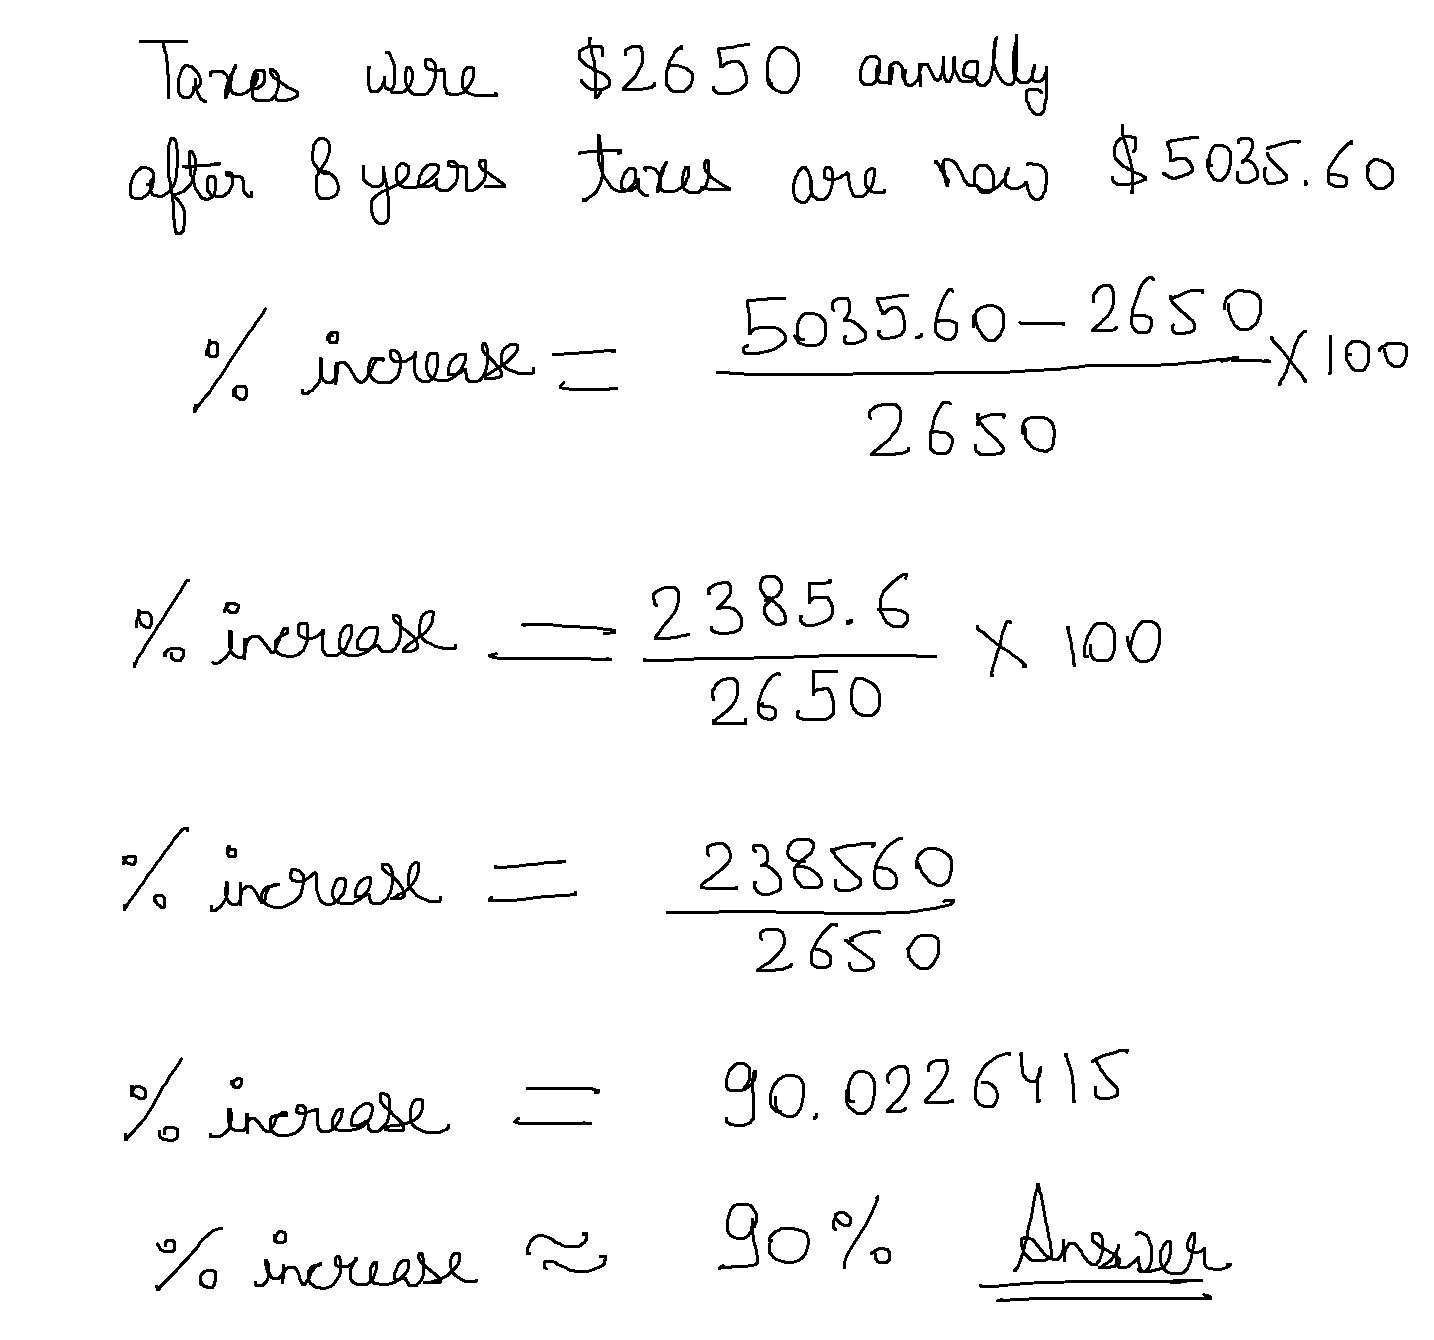 Taxes were $2650 annually
after 8 years taxes are now $5035.60
% increase = (5035.60 - 2650)/2650 X 100
% increase = 2385.6/2650 X 100
% increase = 238560/2650
% increase = 90.0226415
% increase ≈ 90% Answer